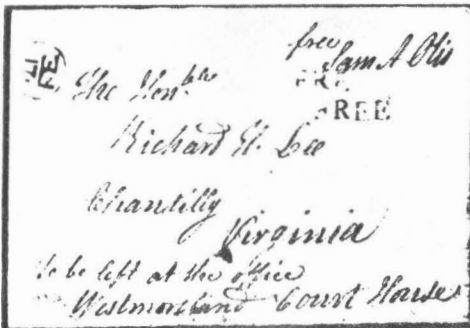 free
Sam A Otis
FRE
FREE
The Honble
Richard H. Lee
Chantilly
Virginia
to be left at the office
Westmoreland Court House